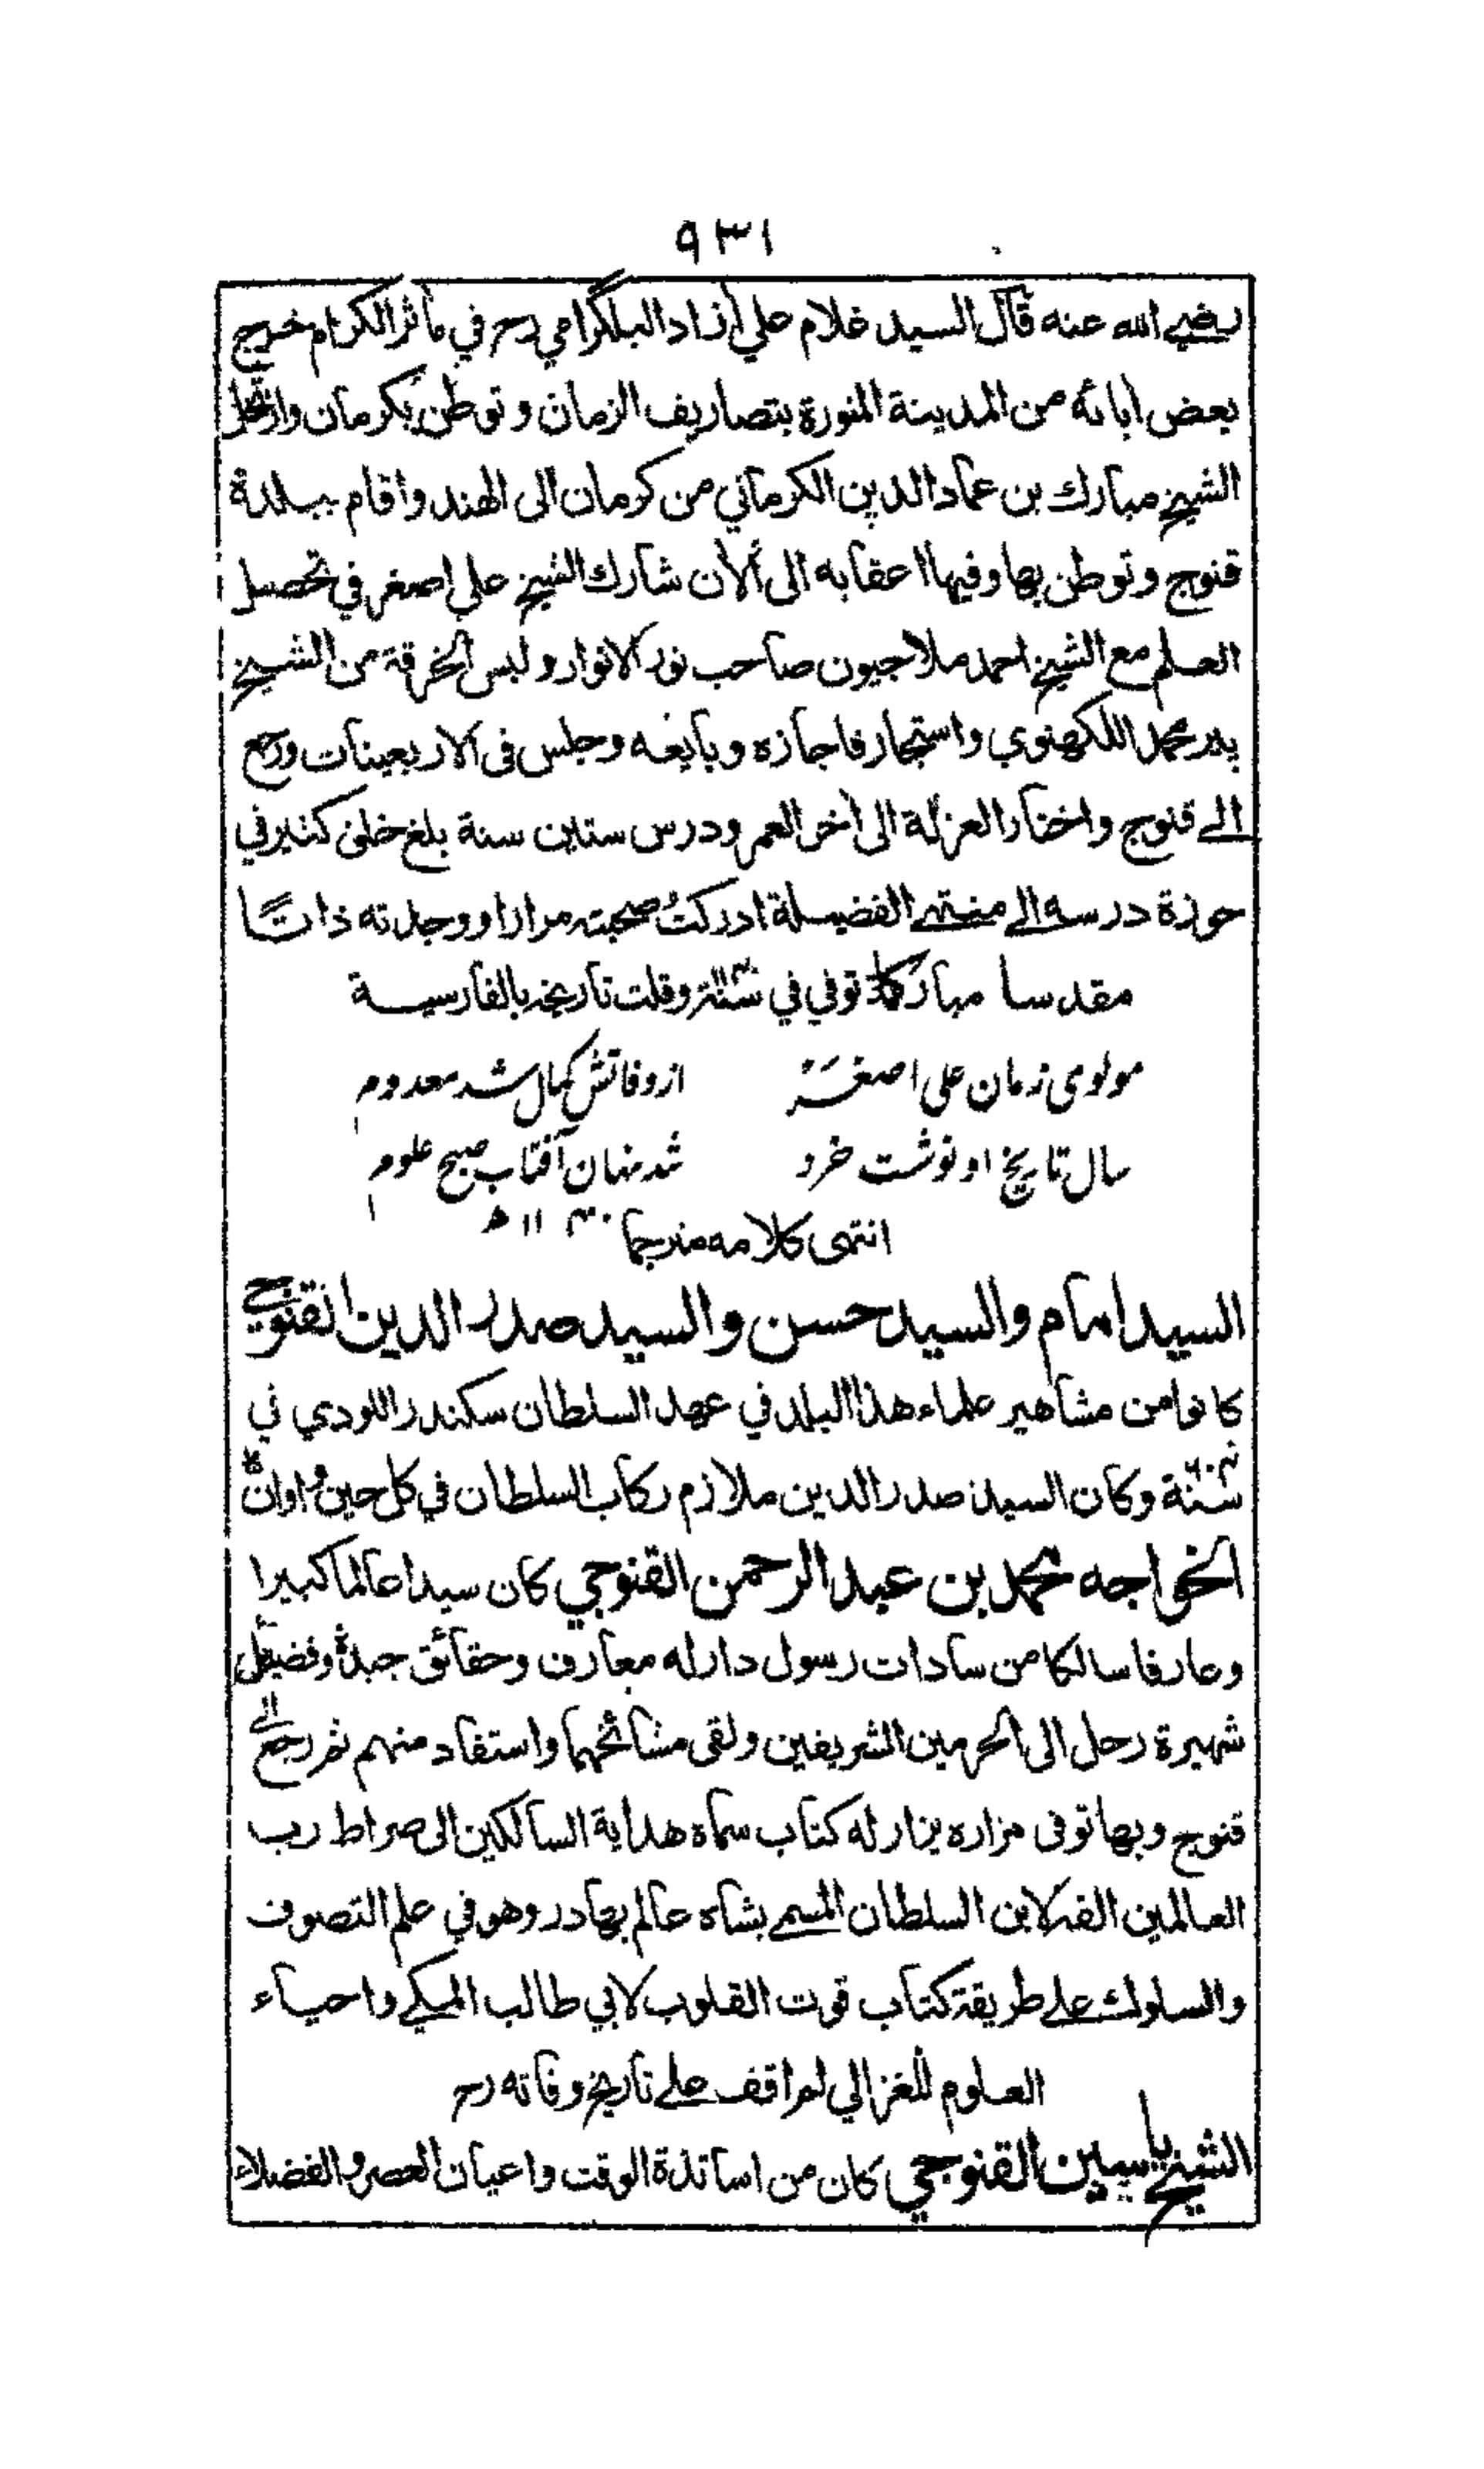 ٩٣١
رضي الله عنه قال السيد غلام علي أزاد البلگرامي رح في مأثر الكرام خرج
بعض ابائه من المدينة المنورة بتصاريف الزمان وتوطن بكرمان وارتحل
الشيخ مبارك بن عماد الدين الكرماني من كرمان الى الهند واقام ببلدة
قنوج وتوطن بها وفيها اعقابه الى ألأن شارك الشيخ علي اصغر في تحصيل
العلم مع الشيخ احمد ملا جيون صاحب نور الانوار ولبس الخرقة من الشيخ
پير محمد اللكهنوي واستجاز فاجازه وبايعه وجلس فى الاربعينات ورجع
الے قنوج واختار العزلة الى أخر العمر ودرس ستين سنة بلغ خلق كثير في
حوزة درسه الے منتهى الفضيلة ادركتُ صحبته مرارا ووجدته ذاتًا
مقدسا مباركا توفي في سنة وقلت تاريخه بالفارسية
مولوى زمان على اصغر از وفاتش كمال شد معدوم
سال تاريخ او نوشت خرد شد نهان آفتاب صبح علوم
انتهى كلامه مترجما ١١٤٠ ه
السيد امام والسيد حسن والسيد صدر الدين القنوجي
كانوا من مشاهير علماء هذا البلد في عهد السلطان سكندر اللودي في
سنة وكان السيد صدر الدين ملازم ركاب السلطان في كل حين واوان
الخواجه محمد بن عبد الرحمن القنوجي كان سيدا عالما كبيرا
وعارفا سالكا من سادات رسول دار له معارف وحقائق جيدة وفضائل
شهيرة رحل الى الحرمين الشريفين ولقى مشائخهما واستفاد منهم ثم رجع الے
قنوج وبها توفى مزاره يزار له كتاب سماه هداية السالكين الى صراط رب
العالمين الفه لابن السلطان المسمے بشاه عالم بهادر وهو في علم التصوف
والسلوك علے طريقة كتاب قوت القلوب لابي طالب المكي واحياء
العلوم للغزالي لم اقف علے تاريخ وفاته رح
الشيخ ياسين القنوجي كان من اساتذة الوقت واعيان العصر والفضلاء